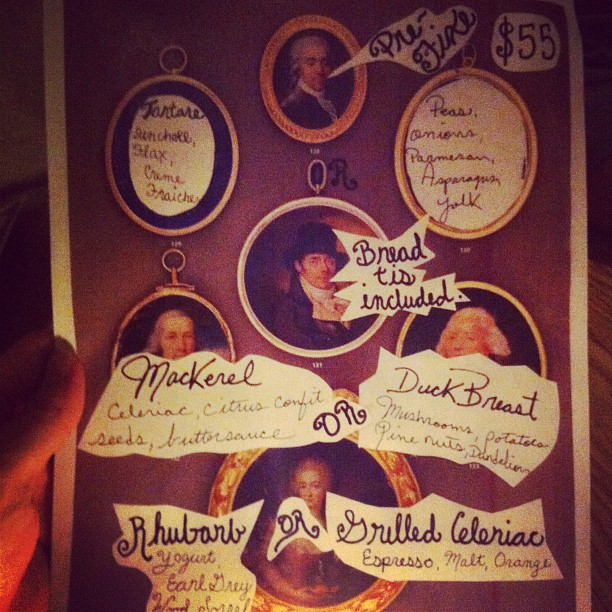 Pre-
Fixe
$55
Tartare
Sunchoke,
Flax,
Creme
Fraiche
OR
Peas,
onions,
Parmesan,
Asparagus,
yolk
Bread
tis
included.
Mackerel
Celeriac, citrus confit
seeds, buttersauce
OR
Duck Breast
Mushrooms, potatoes
Pine nuts, Dandelion
Rhubarb
Yogurt
Earl Grey
Wood Sorrel
OR
Grilled Celeriac
Espresso, Malt, Orange